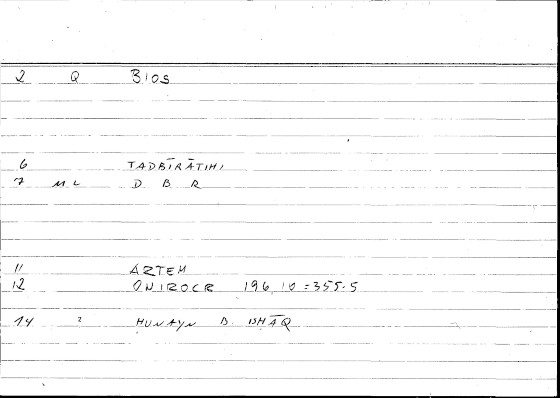 2 Q Bios
6 TADBĪRĀTIHI
7 ML D B R
11 ARTEM
12 ONIROCR 196,10=355.5
14 2 HUNAYN B. ISHĀQ